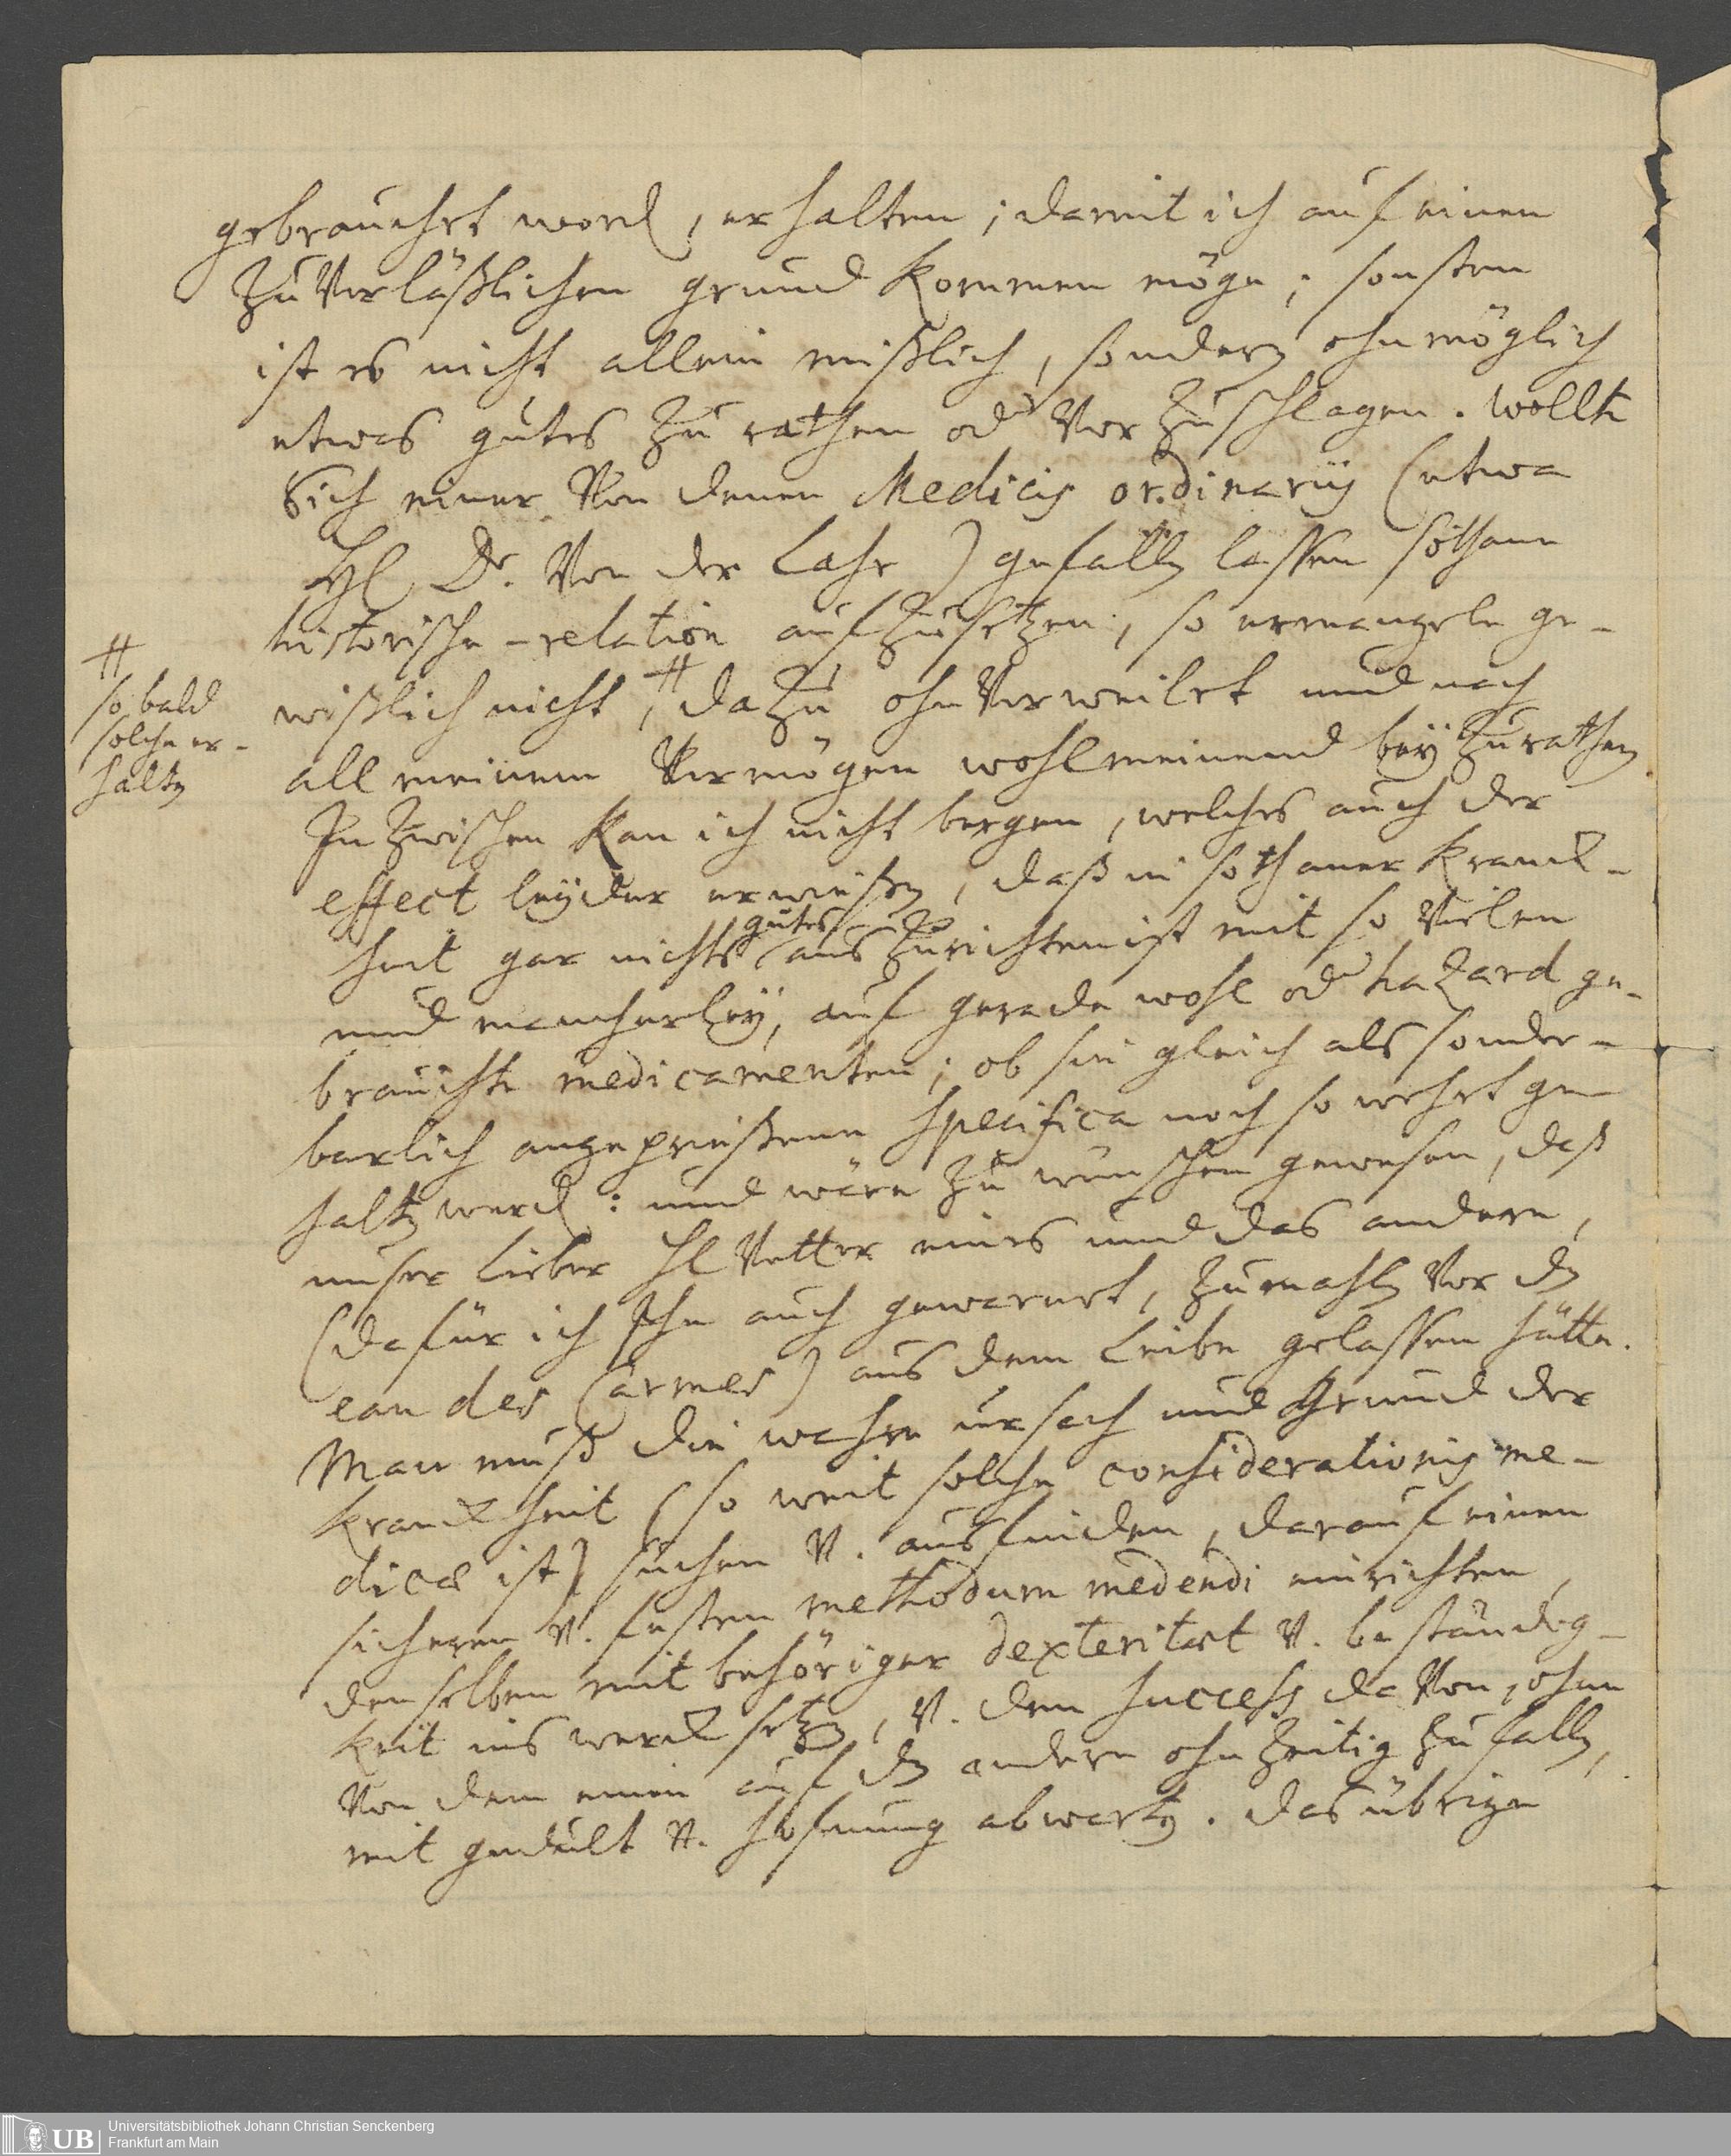 gebrauchet word, erhalten; damit ich auf einen
zuverläßlichen grund kommen möge; sonsten
ist es nicht allein mißlich, sondern ohnmöglich
etwas gutes zu rathen od vorzuschlagen. wollte
Sich einer von denen Medicis ordinarijs (etwa
Hl Dr. von der Lahr) gefallen lassen sothane
historische-relation aufzusetzen, so ermangele ge-
wißlich nicht, # dazu ohnverweilet und nach
#
so bald
solche er-
halten
all meinem Vermögen wohlmeinend beyzurathen
Inzwischen kan ich nicht bergen, welches auch der
effect leyder erwiesen, daß in sothaner Kranck-
heit gar nichts gutes auszurichten ist mit so vielen
und mancherley, auf gerade wohl od hazard ge-
brauchte medicamenten; ob sie gleich als sonder-
barlich angepriesene specifica noch so wehrt ge-
halten werd: und wäre zu wünschen gewesen, daß
unser lieber Hl Vetter eines und das andere,
(dafür ich Ihn auch gewarnet, zumahlen vor den
eau des Carmes) aus dem Leibe gelassen hätte.
Man muß die wahre ursach und Grund der
Kranckheit (so weit solche considerationis me-
dicæ ist) suchen u. ausfinden, darauf einen
sicheren u. festen methodum medendi einrichten,
denselben mit behöriger dexteritæt u. beständig-
keit ins werck setzen, u. den success davon, ohne
von dem einen auf den andern ohnzeitig zu fallen,
mit gedult u. hofnung abwarten. das übrige
Universitätsbibliothek Johann Christian Senckenberg
Frankfurt am Main
UB